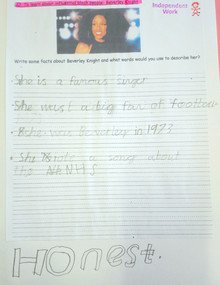 To learn about influential black people- Beverley Knight
Independent
Work
Write some facts about Beverley Knight and what words would you use to describe her?
She is a famous singer
She wast a big fan of footow
She was Beverley in 1973
She Wrote a song about
the NHS
Honest.